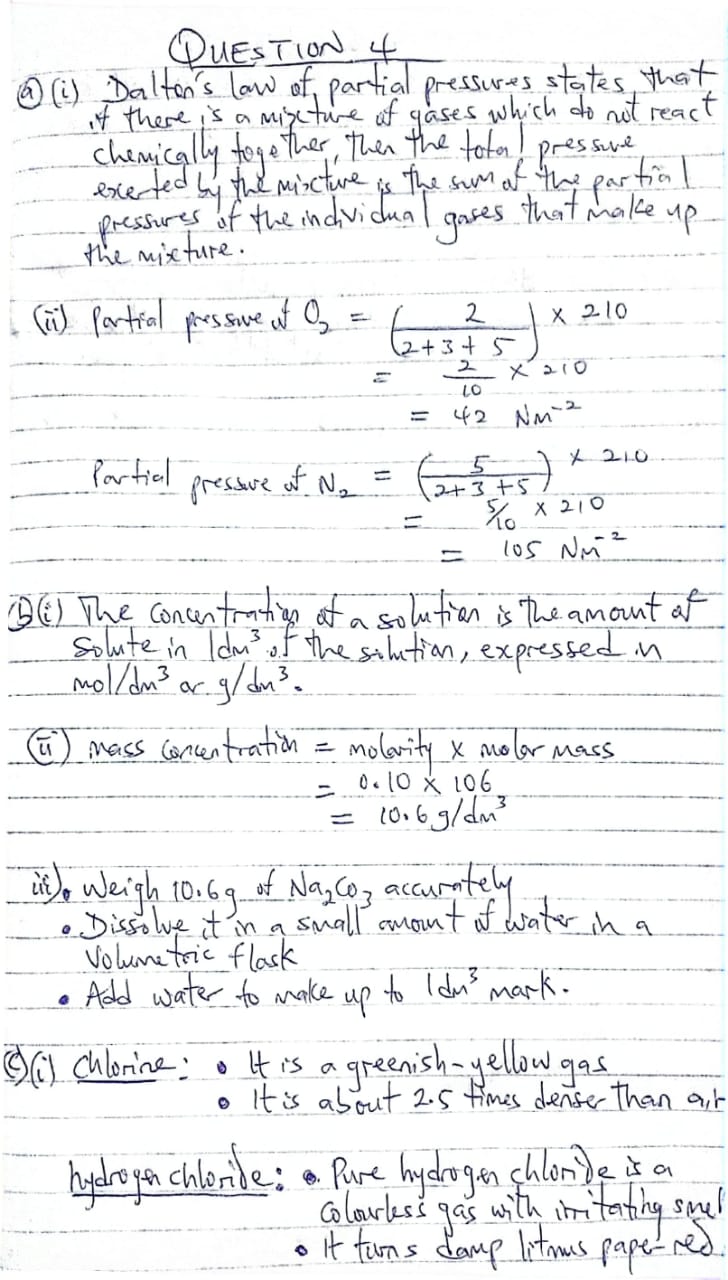 QUESTION 4
(a) (i) Dalton's law of partial pressures states that
if there is a mixture of gases which do not react
chemically together, then the total pressure
exerted by the mixture is the sum of the partial
pressures of the individual gases that make up
the mixture.
(ii) Partial pressure of O₂ = (2/(2+3+5)) × 210
= 2/10 × 210
= 42 Nm⁻²
Partial pressure of N₂ = (5/(2+3+5)) × 210
= 5/10 × 210
= 105 Nm⁻²
(b)(i) The concentration of a solution is the amount of
solute in 1dm³ of the solution, expressed in
mol/dm³ or g/dm³.
(ii) mass concentration = molarity × molar mass
= 0.10 × 106
= 10.6 g/dm³
iii) • Weigh 10.6g of Na₂CO₃ accurately
• Dissolve it in a small amount of water in a
volumetric flask
• Add water to make up to 1dm³ mark.
(c)(i) Chlorine: • It is a greenish-yellow gas
• It is about 2.5 times denser than air
hydrogen chloride: • Pure hydrogen chloride is a
colourless gas with irritating smel
• It turns damp litmus paper red.